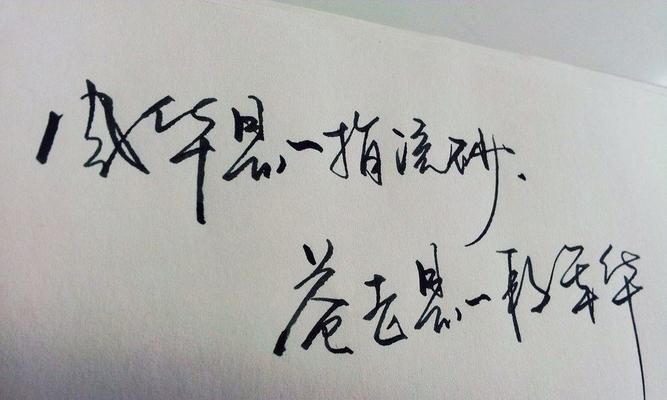 岁华是一指流砂、
苍老是一段年华